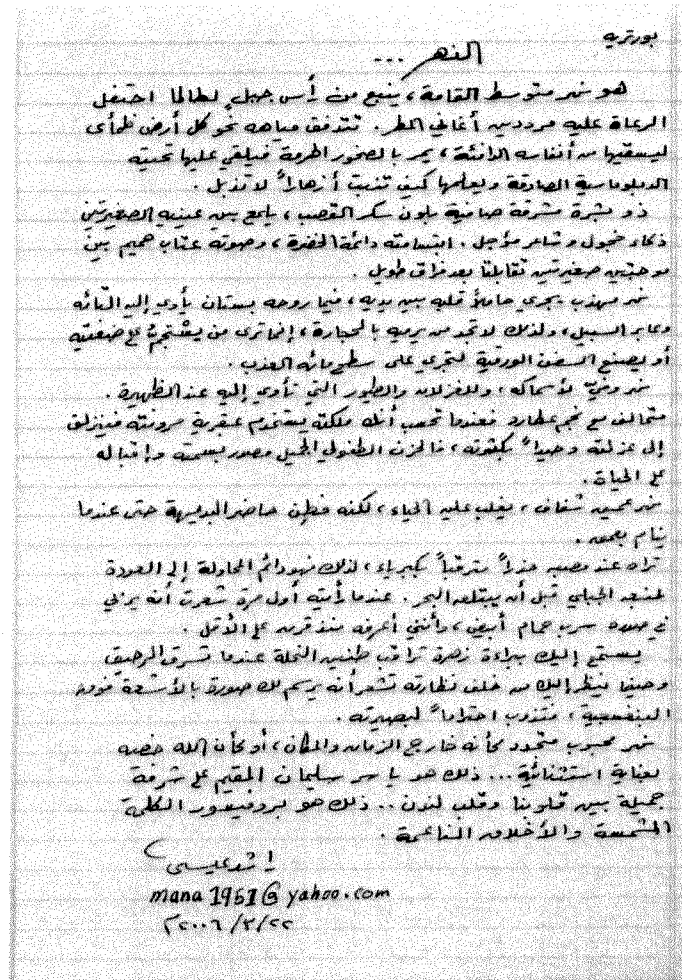 بورتريه
النهر ...
هو نهر متوسط القامة، ينبع من رأس جبلٍ لطالما احتفل
الرعاة عليه مرددين أغاني المطر. تتدفق مياهه نحو كل أرض ظمأى
ليسقيها من أنفاسه الدافئة، يمر بالصخور الهرمة فيلقي عليها تحيته
الدبلوماسية الصادقة ويعلمها كيف تنبت أزهاراً لا تذبل.
ذو بشرة مشرقة صافية بلون سكر القصب، يلمع بين عينيه الصغيرتين
ذكاء خجول وشاعر مؤجل. ابتسامته دائمة الخضرة، وصوته عتاب حميم بين
موجتين صغيرتين تقابلتا بعد فراق طويل.
نهر مهذب يجري حاملاً قلبه بين يديه، فيا روحه بستان يأوي إليه التائه
وعابر السبيل، ولذلك لا تجد من يرميه بالحجارة، إنما ترى من يستجمّ على ضفتيه
أو يصنع السفن الورقية لتجري على سطح مائه العذب.
نهر وفيّ لأسماكه، وللغزلان والطيور التي تأوي إليه عند الظهيرة.
متحالف مع نجم عطارد فعندما تحسب أنك ملكته يستخدم عبقرية مرونته فينزلق
إلى عزلته وحيداً بكثرته، فالحزن الطفولي الجميل مصدر بسمته وإقباله
على الحياة.
نهر عميق شفاف، يغلب عليه الحياء، لكنه فطن حاضر البديهة حتى عندما
ينام بعمق.
تراه عند مصبه حذراً مترقباً بكبرياء، لذلك فهو دائم المحاولة إلى العودة
لمنبعه الجبلي قبل أن يبتلعه البحر. عندما رأيته أول مرة شعرت أنه يربي
في صدره سرب حمام أبيض، وأنني أعرفه منذ قرن على الأقل.
يستمع إليك ببراءة زهرة تراقب طنين النحلة عندما تسرق الرحيق
وحينما ينظر إليك من خلف نظارته تشعر أنه يرسم لك صورة بالأشعة فوق
البنفسجية، فتذوب احتراماً لبصيرته.
نهر محبوب متمدد كأنه خارج الزمان والمكان، أو كأن الله خصه
بعناية استثنائية... ذلك هو ياسر سليمان المقيم على شرفة
جميلة بين قلوبنا وقلب لندن.. ذلك هو بروفيسور الكلمة
المشمسة والأخلاق الناعمة.
راشد عيسى
mana1951@yahoo.com
٢٠٠٦/٣/٢٢م